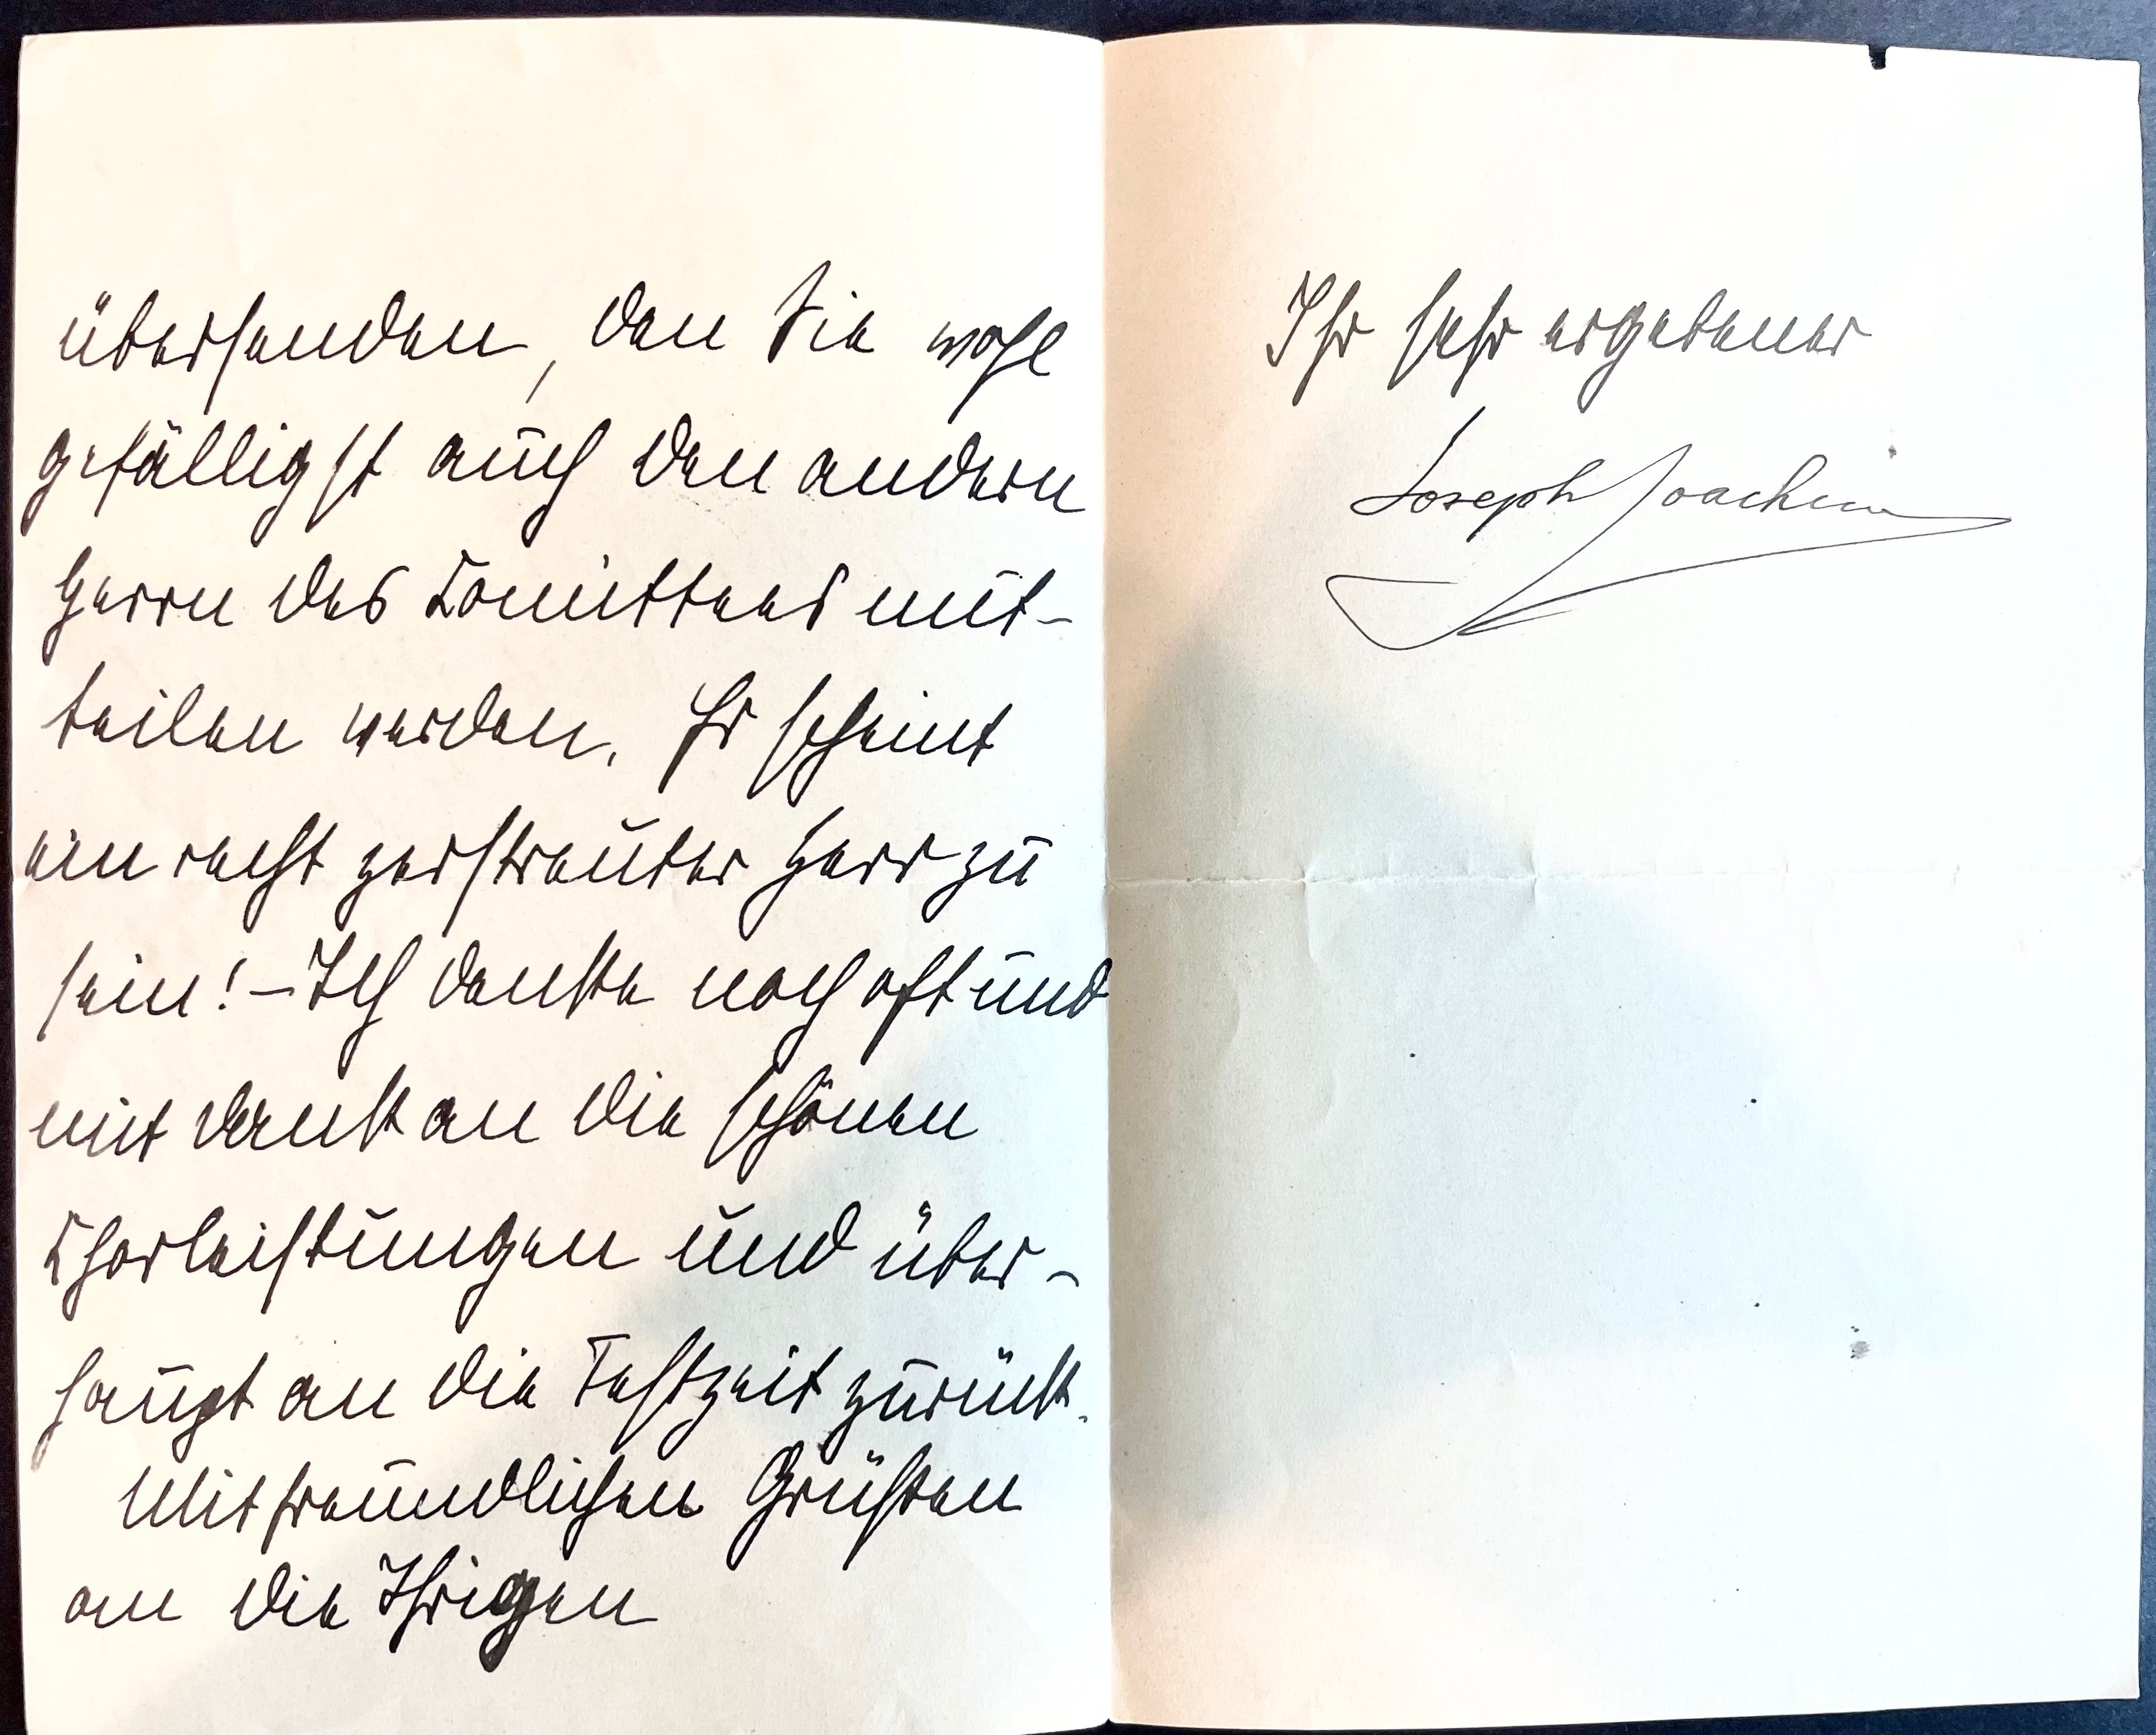 übersenden, den Sie wohl
gefälligst auch den andern
Herrn des Comittees mit-
teilen werden. Er scheint
ein recht zerstreuter Herr zu
sein! – Ich denke noch oft und
mit Dank an die schönen
Chorleistungen und über-
haupt an die Festzeit zurück.
Mit freundlichen Grüßen
an die Ihrigen
Ihr sehr ergebener
Joseph Joachim